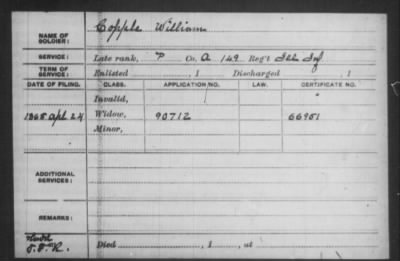 NAME OF SOLDIER: Copple William
SERVICE: Late rank, P Co. A 149 Reg't Ill Inf
TERM OF SERVICE: Enlisted , 1 Discharged , 1
DATE OF FILING. CLASS. APPLICATION NO. LAW. CERTIFICATE NO.
Invalid,
1865 Apl 24 Widow, 90712 66951
Minor,
ADDITIONAL SERVICES:
REMARKS:
Died , 1 , at